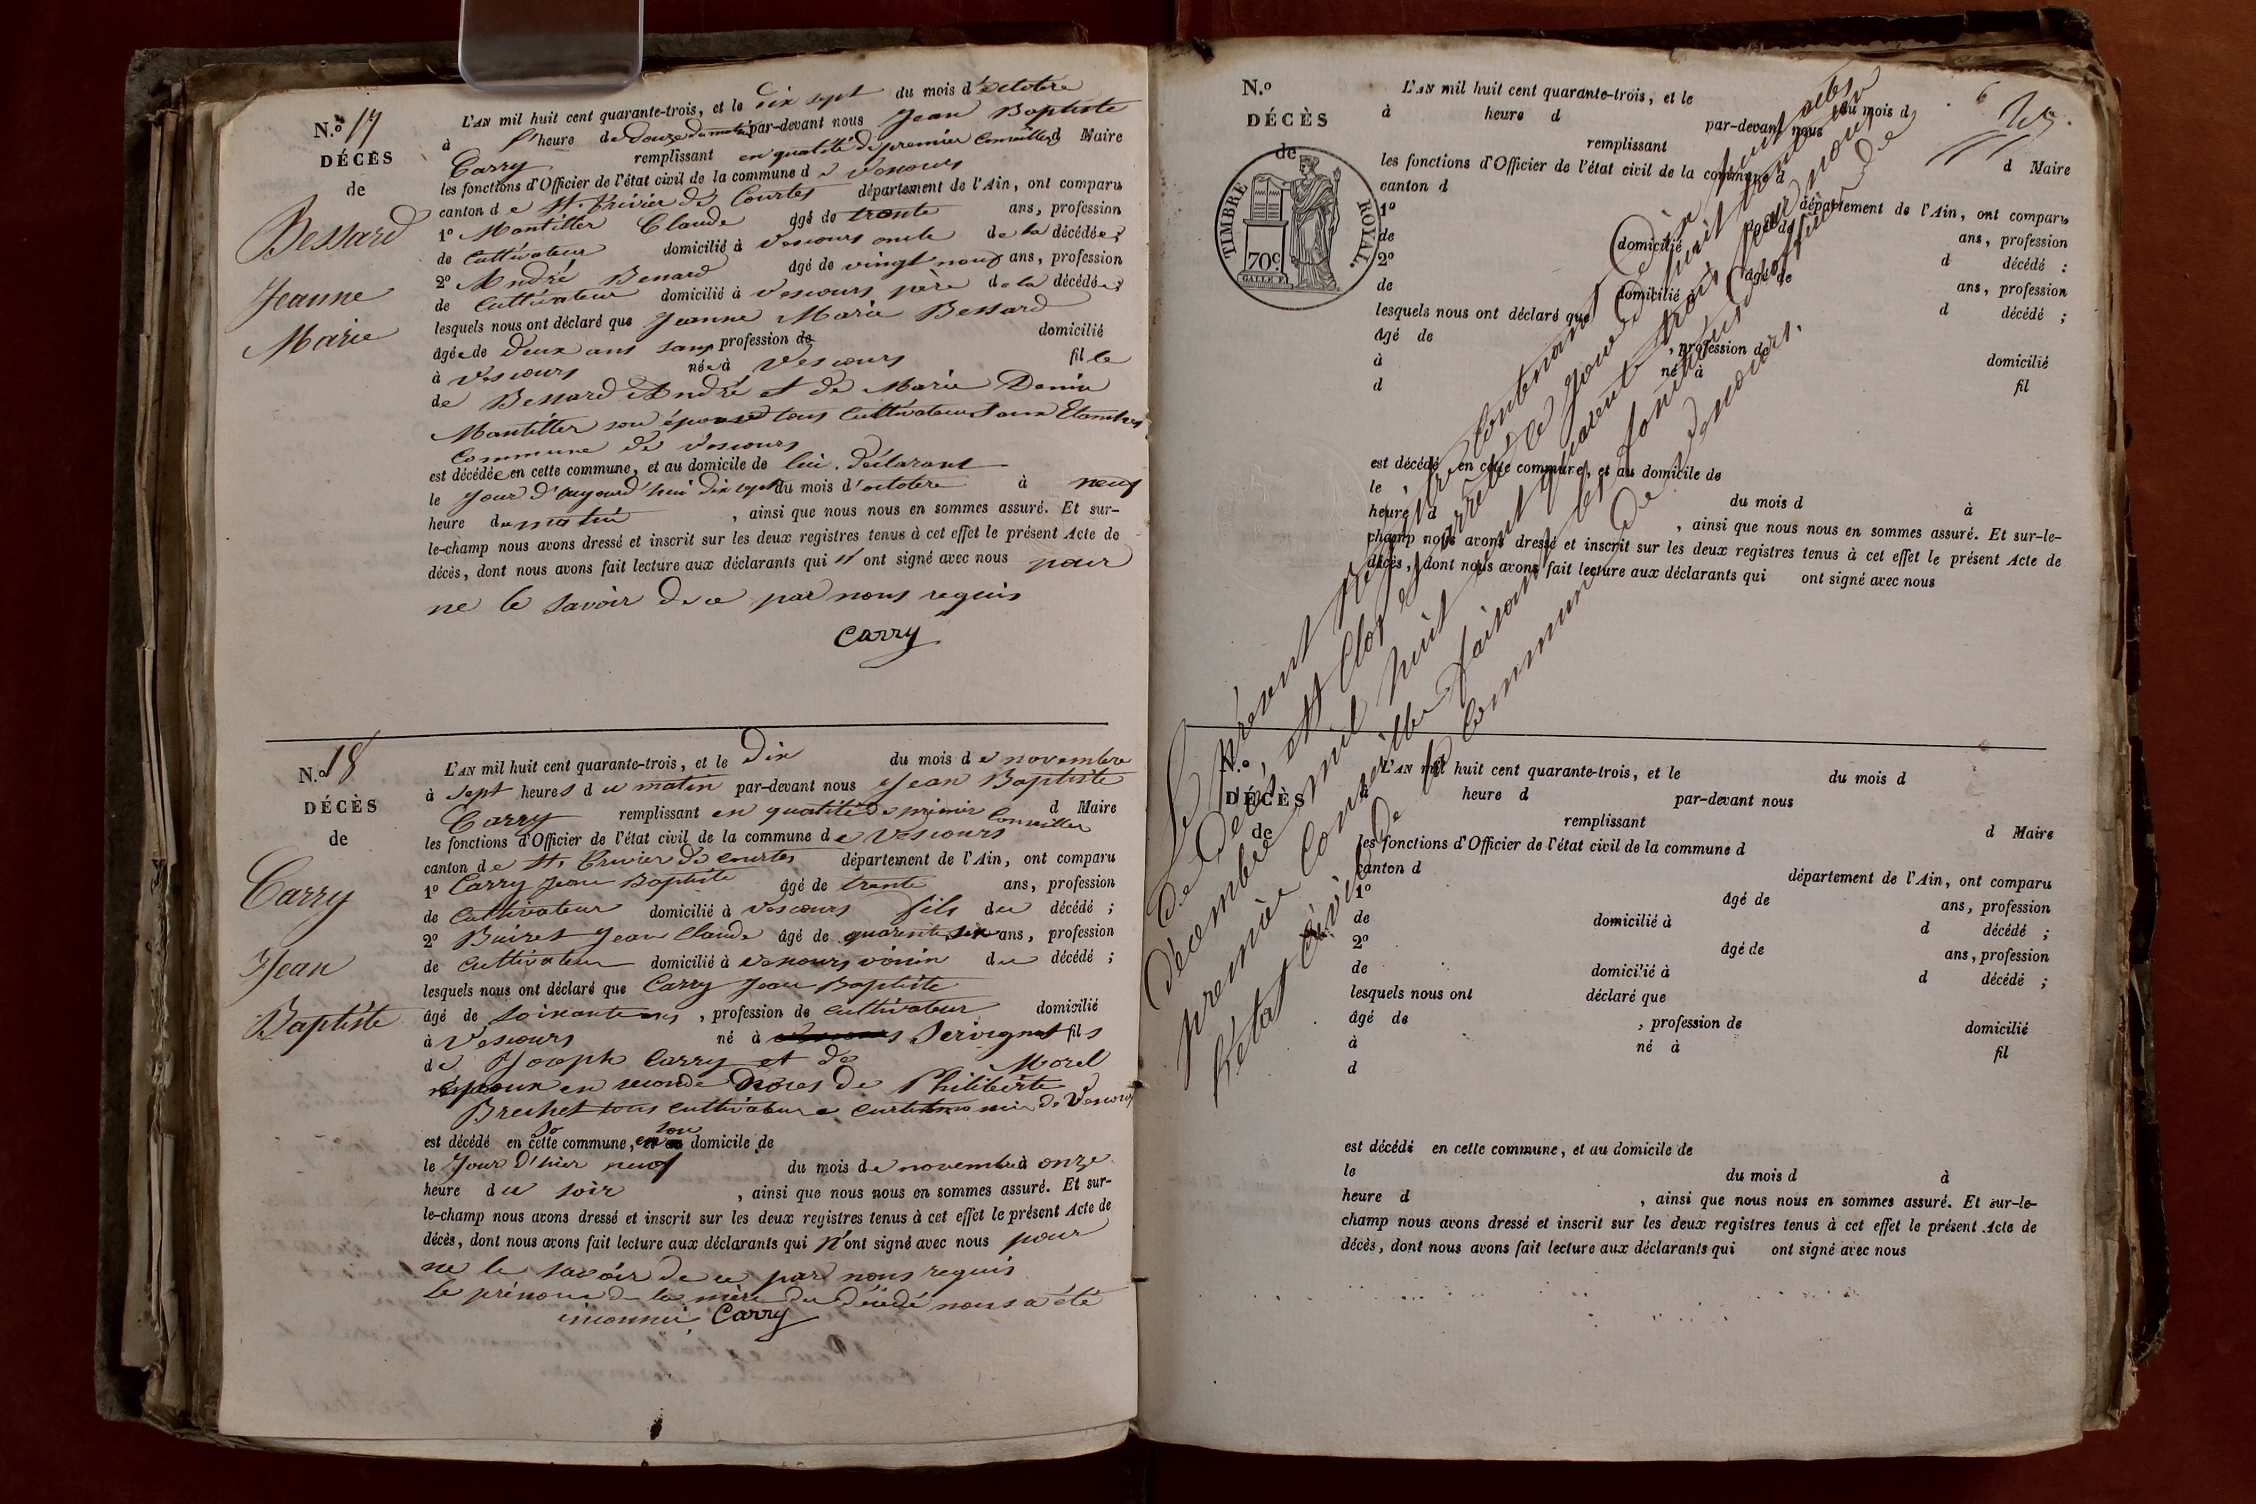 N.º 17
DÉCÈS
de
Bessard
Jeanne
Marie
L'AN mil huit cent quarante-trois, et le dix sept du mois d'octobre
à l'heure de Douze du matin par-devant nous Jean Baptiste
Carry remplissant en qualité de premier Conseiller d Maire
les fonctions d'Officier de l'état civil de la commune de Vescours
canton de St. Trivier de Courtes département de l'Ain, ont comparu
1º Mantillier Claude âgé de trente ans, profession
de Cultivateur domicilié à Vescours oncle de la décédée;
2º André Bessard âgé de vingt neuf ans, profession
de Cultivateur domicilié à Vescours père de la décédée;
lesquels nous ont déclaré que Jeanne Marie Bessard
âgée de deux ans sans profession de domicilié
à Vescours née à Vescours fille
de Bessard André et de Marie Denise
Mantillier son épouse tous Cultivateurs aux
Commune de Vescours
est décédée en cette commune, et au domicile de lui déclarant
le jour d'aujourd'hui dix sept du mois d'octobre à neuf
heure du matin, ainsi que nous nous en sommes assuré. Et sur-
le-champ nous avons dressé et inscrit sur les deux registres tenus à cet effet le présent Acte de
décès, dont nous avons fait lecture aux déclarants qui n'ont signé avec nous pour
ne le savoir de ce par nous requis
Carry
N.º 18
DÉCÈS
de
Carry
Jean
Baptiste
L'AN mil huit cent quarante-trois, et le Dix du mois de novembre
à sept heures du matin par-devant nous Jean Baptiste
Carry remplissant en qualité de premier Conseiller d Maire
les fonctions d'Officier de l'état civil de la commune de Vescours
canton de St. Trivier de Courtes département de l'Ain, ont comparu
1º Carry Jean Baptiste âgé de trente ans, profession
de Cultivateur domicilié à Vescours fils du décédé;
2º Buiret Jean Claude âgé de quarente six ans, profession
de Cultivateur domicilié à Vescours voisin du décédé;
lesquels nous ont déclaré que Carry Jean Baptiste
âgé de soixante ans, profession de Cultivateur domicilié
à Vescours né à Servignat fils
de Joseph Carry et de Morel
époux en seconde Noces de Philiberte
Brechet tous cultivateurs de Vescours
est décédé en cette commune, en son domicile de
le Jour d'hier neuf du mois de novembre à onze
heure du soir, ainsi que nous nous en sommes assuré. Et sur-
le-champ nous avons dressé et inscrit sur les deux registres tenus à cet effet le présent Acte de
décès, dont nous avons fait lecture aux déclarants qui n'ont signé avec nous pour
ne le savoir de ce par nous requis
Le prénom de la mère du Décédé nous a été
inconnu Carry
N.º
DÉCÈS
de
TIMBRE ROYAL.
70c.
L'AN mil huit cent quarante-trois, et le du mois d
à heure d par-devant nous
remplissant d Maire
les fonctions d'Officier de l'état civil de la commune d
canton d département de l'Ain, ont comparu
1º âgé de ans, profession
de domicilié à d décédé;
2º âgé de ans, profession
de domicilié à d décédé;
lesquels nous ont déclaré que
âgé de, profession de domicilié
à né à fil
d
est décédé en cette commune, et au domicile de
le du mois d à
heure d, ainsi que nous nous en sommes assuré. Et sur-le-
champ nous avons dressé et inscrit sur les deux registres tenus à cet effet le présent Acte de
décès, dont nous avons fait lecture aux déclarants qui ont signé avec nous
Le présent Registre Contenant Dix huit actes
de Décès, est Clos et arrêté ce jourd'hui trente un
décembre mil huit cent quarante trois par nous
premier Conseiller faisant les fonctions d'officier de
l'état Civil de la Commune de Vescours.
N.º
DÉCÈS
de
L'AN mil huit cent quarante-trois, et le du mois d
à heure d par-devant nous
remplissant d Maire
les fonctions d'Officier de l'état civil de la commune d
canton d département de l'Ain, ont comparu
1º âgé de ans, profession
de domicilié à d décédé;
2º âgé de ans, profession
de domicilié à d décédé;
lesquels nous ont déclaré que
âgé de, profession de domicilié
à né à fil
d
est décédé en cette commune, et au domicile de
le du mois d à
heure d, ainsi que nous nous en sommes assuré. Et sur-le-
champ nous avons dressé et inscrit sur les deux registres tenus à cet effet le présent Acte de
décès, dont nous avons fait lecture aux déclarants qui ont signé avec nous